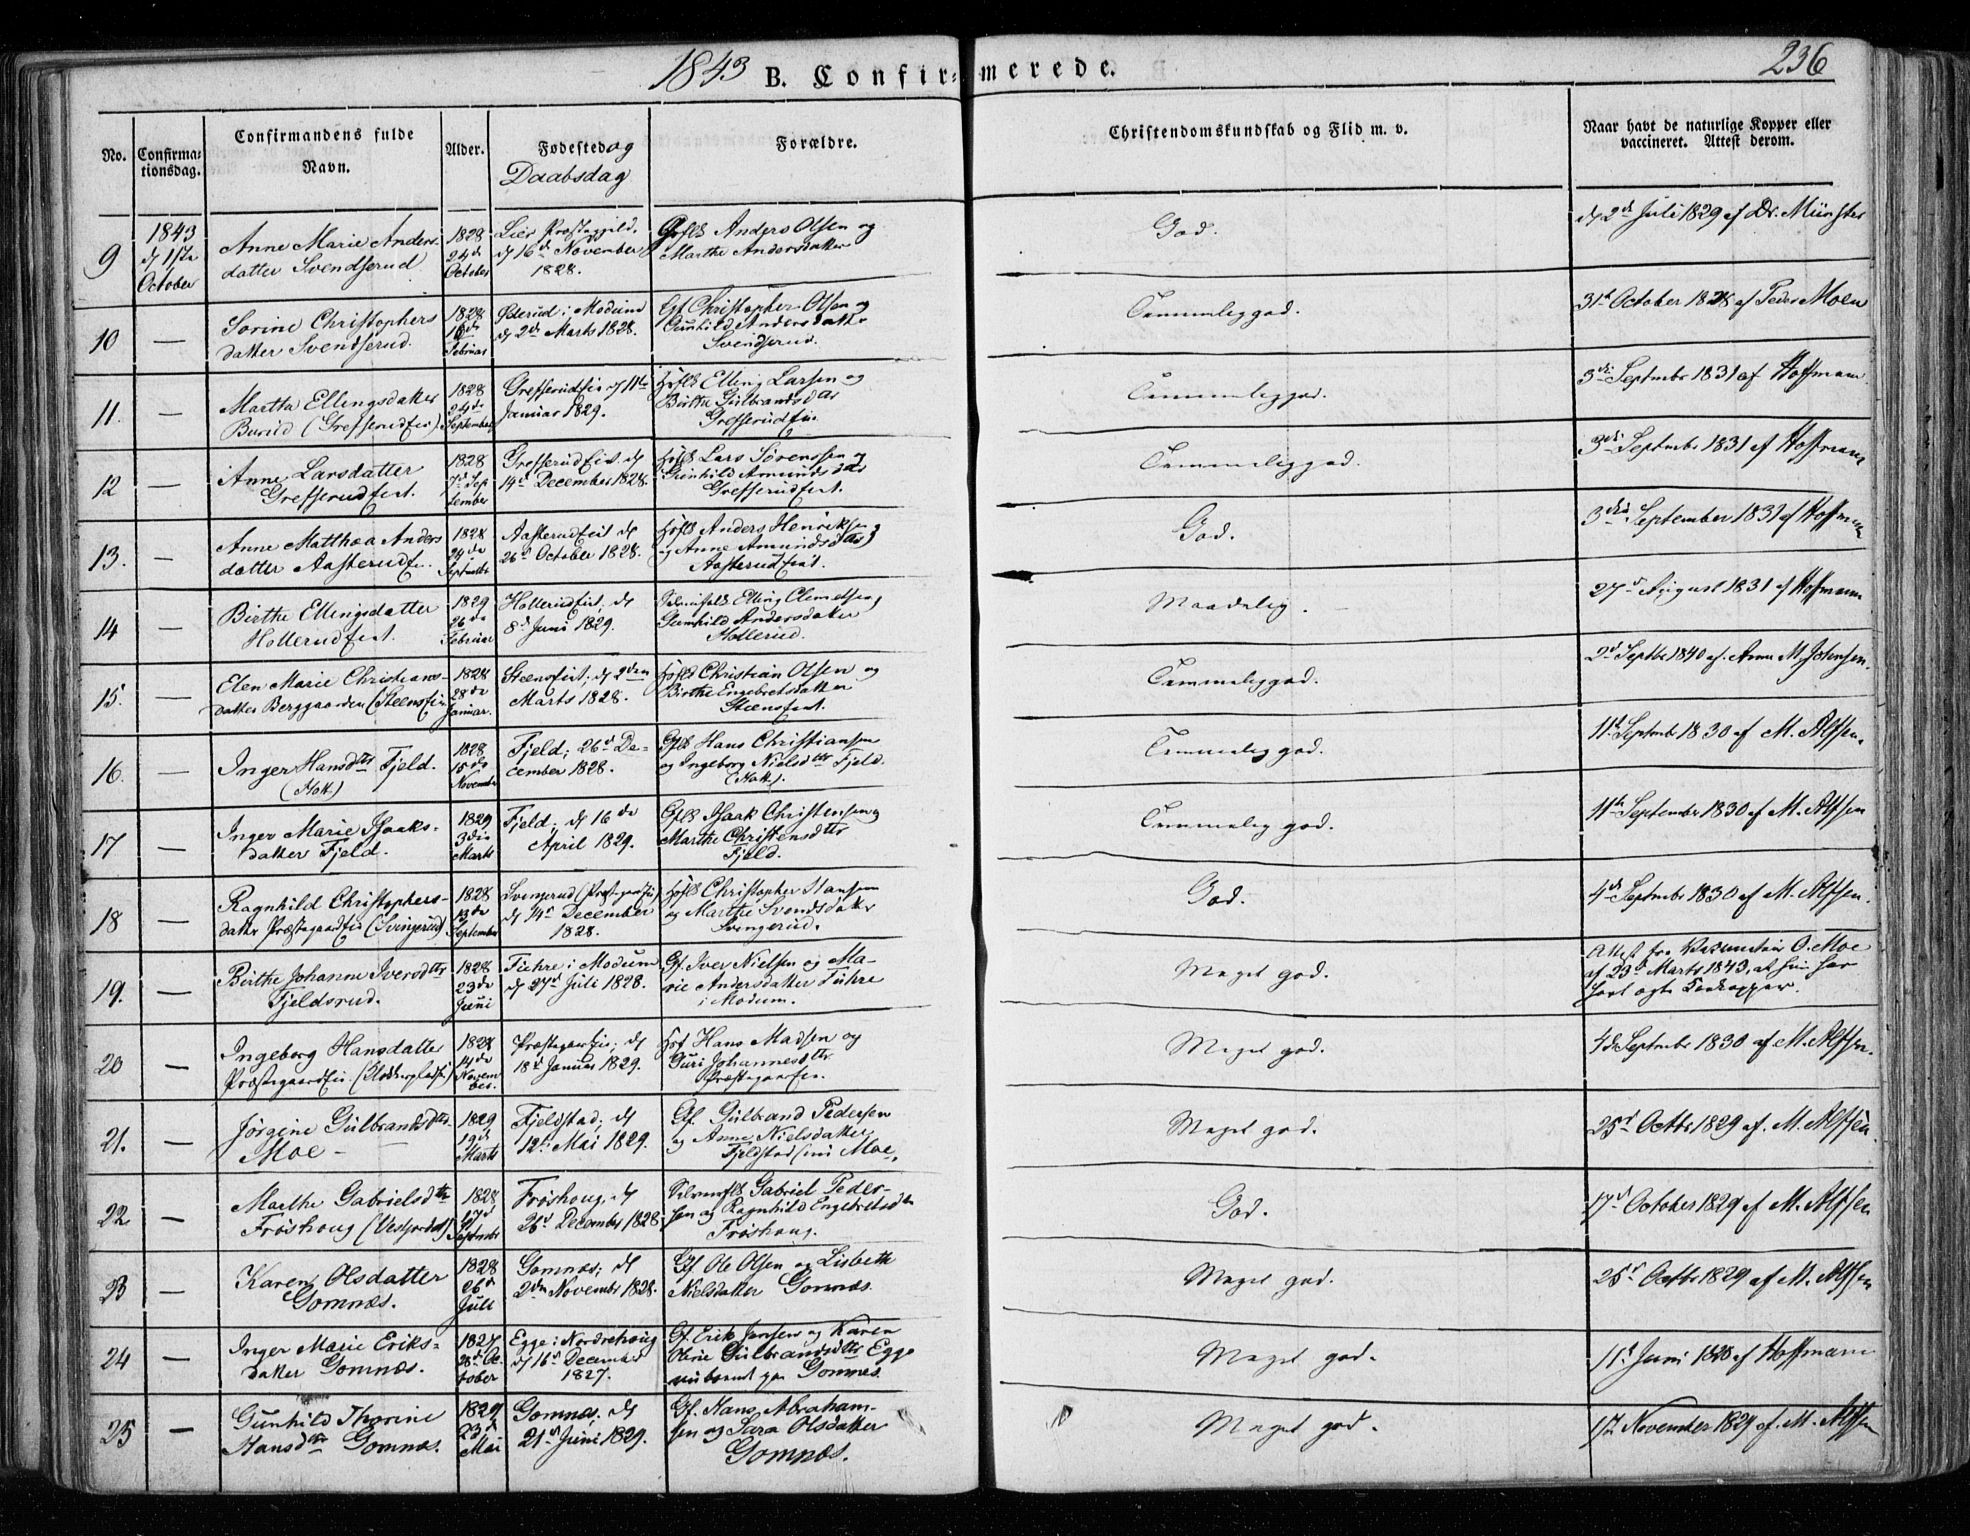 1843 B. Confirmerede. 236
No. Confirmationsdag. Confirmandens fulde Navn. Alder. Fødested og Daabsdag Forældre. Christendomskundskab og Flid m. v. Naar havt de naturlige Kopper eller vaccineret. Attest derom.
9 1843 d 1ste October Anne Marie Anders-
datter Svendsrud 1828 24de October Lier Præstegjeld. d 16d November 1828. Gsflk Anders Olsen og
Marthe Andersdatter God. d 2d Juli 1829 af Dr. Münster
10 — Sorine Christophers
datter Svendsrud. 1828 Februar i Modum
d 2d Marts 1828. Gf Christopher Olsen og
Gunhild Andersdatter
Svendsrud. Temmeliggod. 31t October 1828 af Peder Moen
11. — Martha Ellingsdatter
Burud (Grefserudeie). 1828 24de September Grefserudeie d 11te
Januar 1829. Hsflk Elling Larsen og
Birthe Gulbrandsdtr
Grefserudeie. Temmeliggod. 3die Septembr 1831 af Hoffmann
12 — Anne Larsdatter
Grefserudeiet. 1828 7d September Grefserudeiet. d
14d December 1828. Hsflk Lars Sørenssen og
Gunhild Amundsdtr
Grefserudeiet. Temmeliggod. 3die Septembr 1831 af Hoffmann
13. — Anne Matthea Anders
datter Aasterudeie. 1828 24de Septembr Aasterudeiet d
26d October 1828. Hsflk Anders Henriksen
og Anne Amundsdtr
Aasterudeiet. God. 3die September 1831 af Hoffmann
14 — Birthe Ellingsdatter
Hollerudeiet. 1829 26de Februar Hollerudeiet. d
8d Juni 1829. Elling Clemetsen og
Gunhild Andersdatter
Hollerud. Maadelig. 27d August 1831 af Hoffmann
15. — Elen Marie Christians-
datter Berggaarden (Steenseie 1828 28de Januar. Steenseiet; d 2den
Marts 1828. Hsflk Christian Olsen og
Birthe Engebretsdatter
Steenseiet. Temmeliggod. 2d Septbr 1840 af. Anne M. Johnsen.
16. — Inger Hansdtr Fjeld.
(Hok) 1828 15de November Fjeld; 26d De-
cember 1828. Gsflk Hans Christiansen
og Ingeborg Nielsdtr Fjeld.
(Hok). Temmelig god. 11te Septembr 1830 af M. Alfsen.
17 — Inger Marie Isaaks-
datter Fjeld. 1829 3die Marts Fjeld; d 16de
April 1829. Gsflk Isaak Christensen og
Marthe Christensdtr
Fjeld. Temmelig god. 11te September 1830 af M. Alfsen
18 — Ragnhild Christophers-
datter Præstegaardeie (Svingerud) 1828 13de September Svingerud (Præstegaardeie)
d 14d December
1828. Hsflk Christopher Hansen
og Marthe Svendsdatter
Svingerud. God. 4de Septembr 1830 af M. Alfsen.
19. — Birthe Johanne Iversdtr
Fjeldsrud. 1828 23de Juni Fuhre i Modum
d 27d Juli 1828. Gf. Iver Nielsen og Ma-
rie Andersdatter Fuhre
i Modum. Meget god. Attest fra O. Moe
af 23d Marts 1843, at hun har
havt ægte
20 — Ingeborg Hansdatter
Præstegaardeie. 1828 14de November. Præstegaardeie; d
18d Januar 1829. Hsf Hans Madsen og
Guri Johannesdtr
Præstegaardeie. Meget god. 4de Septembr 1830 af M. Alfsen.
21. — Jørgine Gulbrandsdtr
Moe — 1829 19d Marts Fjeldstad; d
12te Mai 1829. Gf. Gulbrand Pedersen
og Anne Nielsdatter
Fjeldstad (nu Moe. Meget god. 25d Octbr 1829 af. M. Alfsen.
22 — Marthe Gabrielsdtr
Frøshoug 1828 17d Septembr Frøshoug, d
26d December 1828. Gabriel Peder-
sen og Ragnhild Engebretsdtr
Frøshoug. God. 17d October 1829 af M. Alfsen
23 — Karen Olsdatter
Gomnæs. 1828 26d Juli Gomnæs; d
2den Novembr 1828. Gf. Ole Olsen og Lisbeth
Nielsdatter Gomnæs. Meget god. 25d Octbr 1829 af M. Alfsen
24 — Inger Marie Eriks-
datter Gomnæs. 1827 28d October Egge i Norderhoug
d 16d December
1827. Gf. Erik Jensen og Karen
Oline Gulbrandsdtr Egge
nu boende paa Gomnes. Meget god. 11t Juni 1828 af Hoffmann
25 — Gunhild Thorine
Hansdtr Gomnæs. 1829 23d Mai Gomnæs. d
21d Juni 1829. Gf. Hans Abraham-
sen og Sara Olsdatter
Gomnæs. Meget god. 17de November 1829 af M. Alfsen